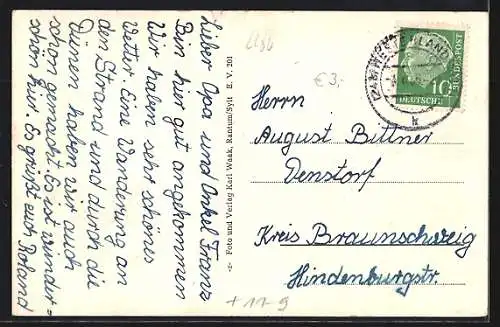 Lieber Opa und Onkel Franz
Bin hier gut angekommen
Wir haben sehr schönes
Wetter. Eine Wanderung an
den Strand und durch die
Dünen haben wir auch
schon gemacht. Es ist wunder=
schön hier. Es grüßt euch Roland
-z- Foto und Verlag Karl Waak, Rantum/Sylt E. V. 201
€3,-
DEUTSCHE
BUNDESPOST
10
WESTERLAND
k
Herrn
August Bittner
Denstorf
Kreis Braunschweig
Hindenburgstr.
+ 11-9